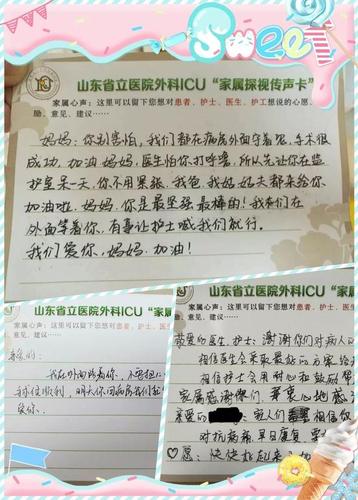 Sweet
山东省立医院外科ICU“家属探视传声卡”
家属心声：这里可以留下您想对患者、护士、医生、护工想说的心愿、
励、意见、建议……
妈妈：你别害怕，我们都在病房外面守着呢，手术很
成功，加油妈妈，医生怕你打呼噜，所以先让你在监
护室呆一天，你不用紧张，我爸，我姑，姑夫都来给你
加油啦，妈妈，你是最坚强最棒的！我们在
外面等着你，有事让护士喊我们就行。
我们爱你，妈妈，加油！
山东省立医院外科ICU“家属
家属心声：这里可以留下您想对患者、护士、医
励、意见、建议……
我在外面陪着你，不要担心
顺利，明天你回病房我们
爱你。
山东省立医院外科ICU“家属
家属心声：这里可以留下您想对患者、护士
意见、建议……
的医生、护士：谢谢你们对病人
相信医生会采取最好的方案给
相信护士会用耐心和鼓励帮
家属感谢你们，衷心地感
亲爱的 家人们 相信你
对抗病痛，早日康复，
愿：快快好起来